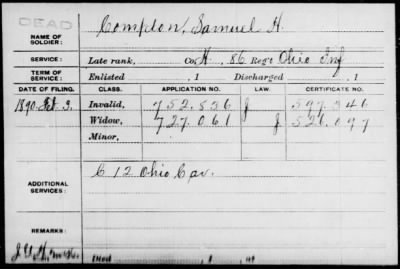 DEAD
NAME OF SOLDIER: Compton, Samuel H.
SERVICE: Late rank, Co. H, 86 Reg't Ohio Inf
TERM OF SERVICE: Enlisted , 1 Discharged , 1
DATE OF FILING. CLASS. APPLICATION NO. LAW. CERTIFICATE NO.
1890. Invalid, 752.526 J 597.346
Widow, 727.061 J 526.097
Minor,
ADDITIONAL SERVICES: C 12 Ohio Cav.
REMARKS: